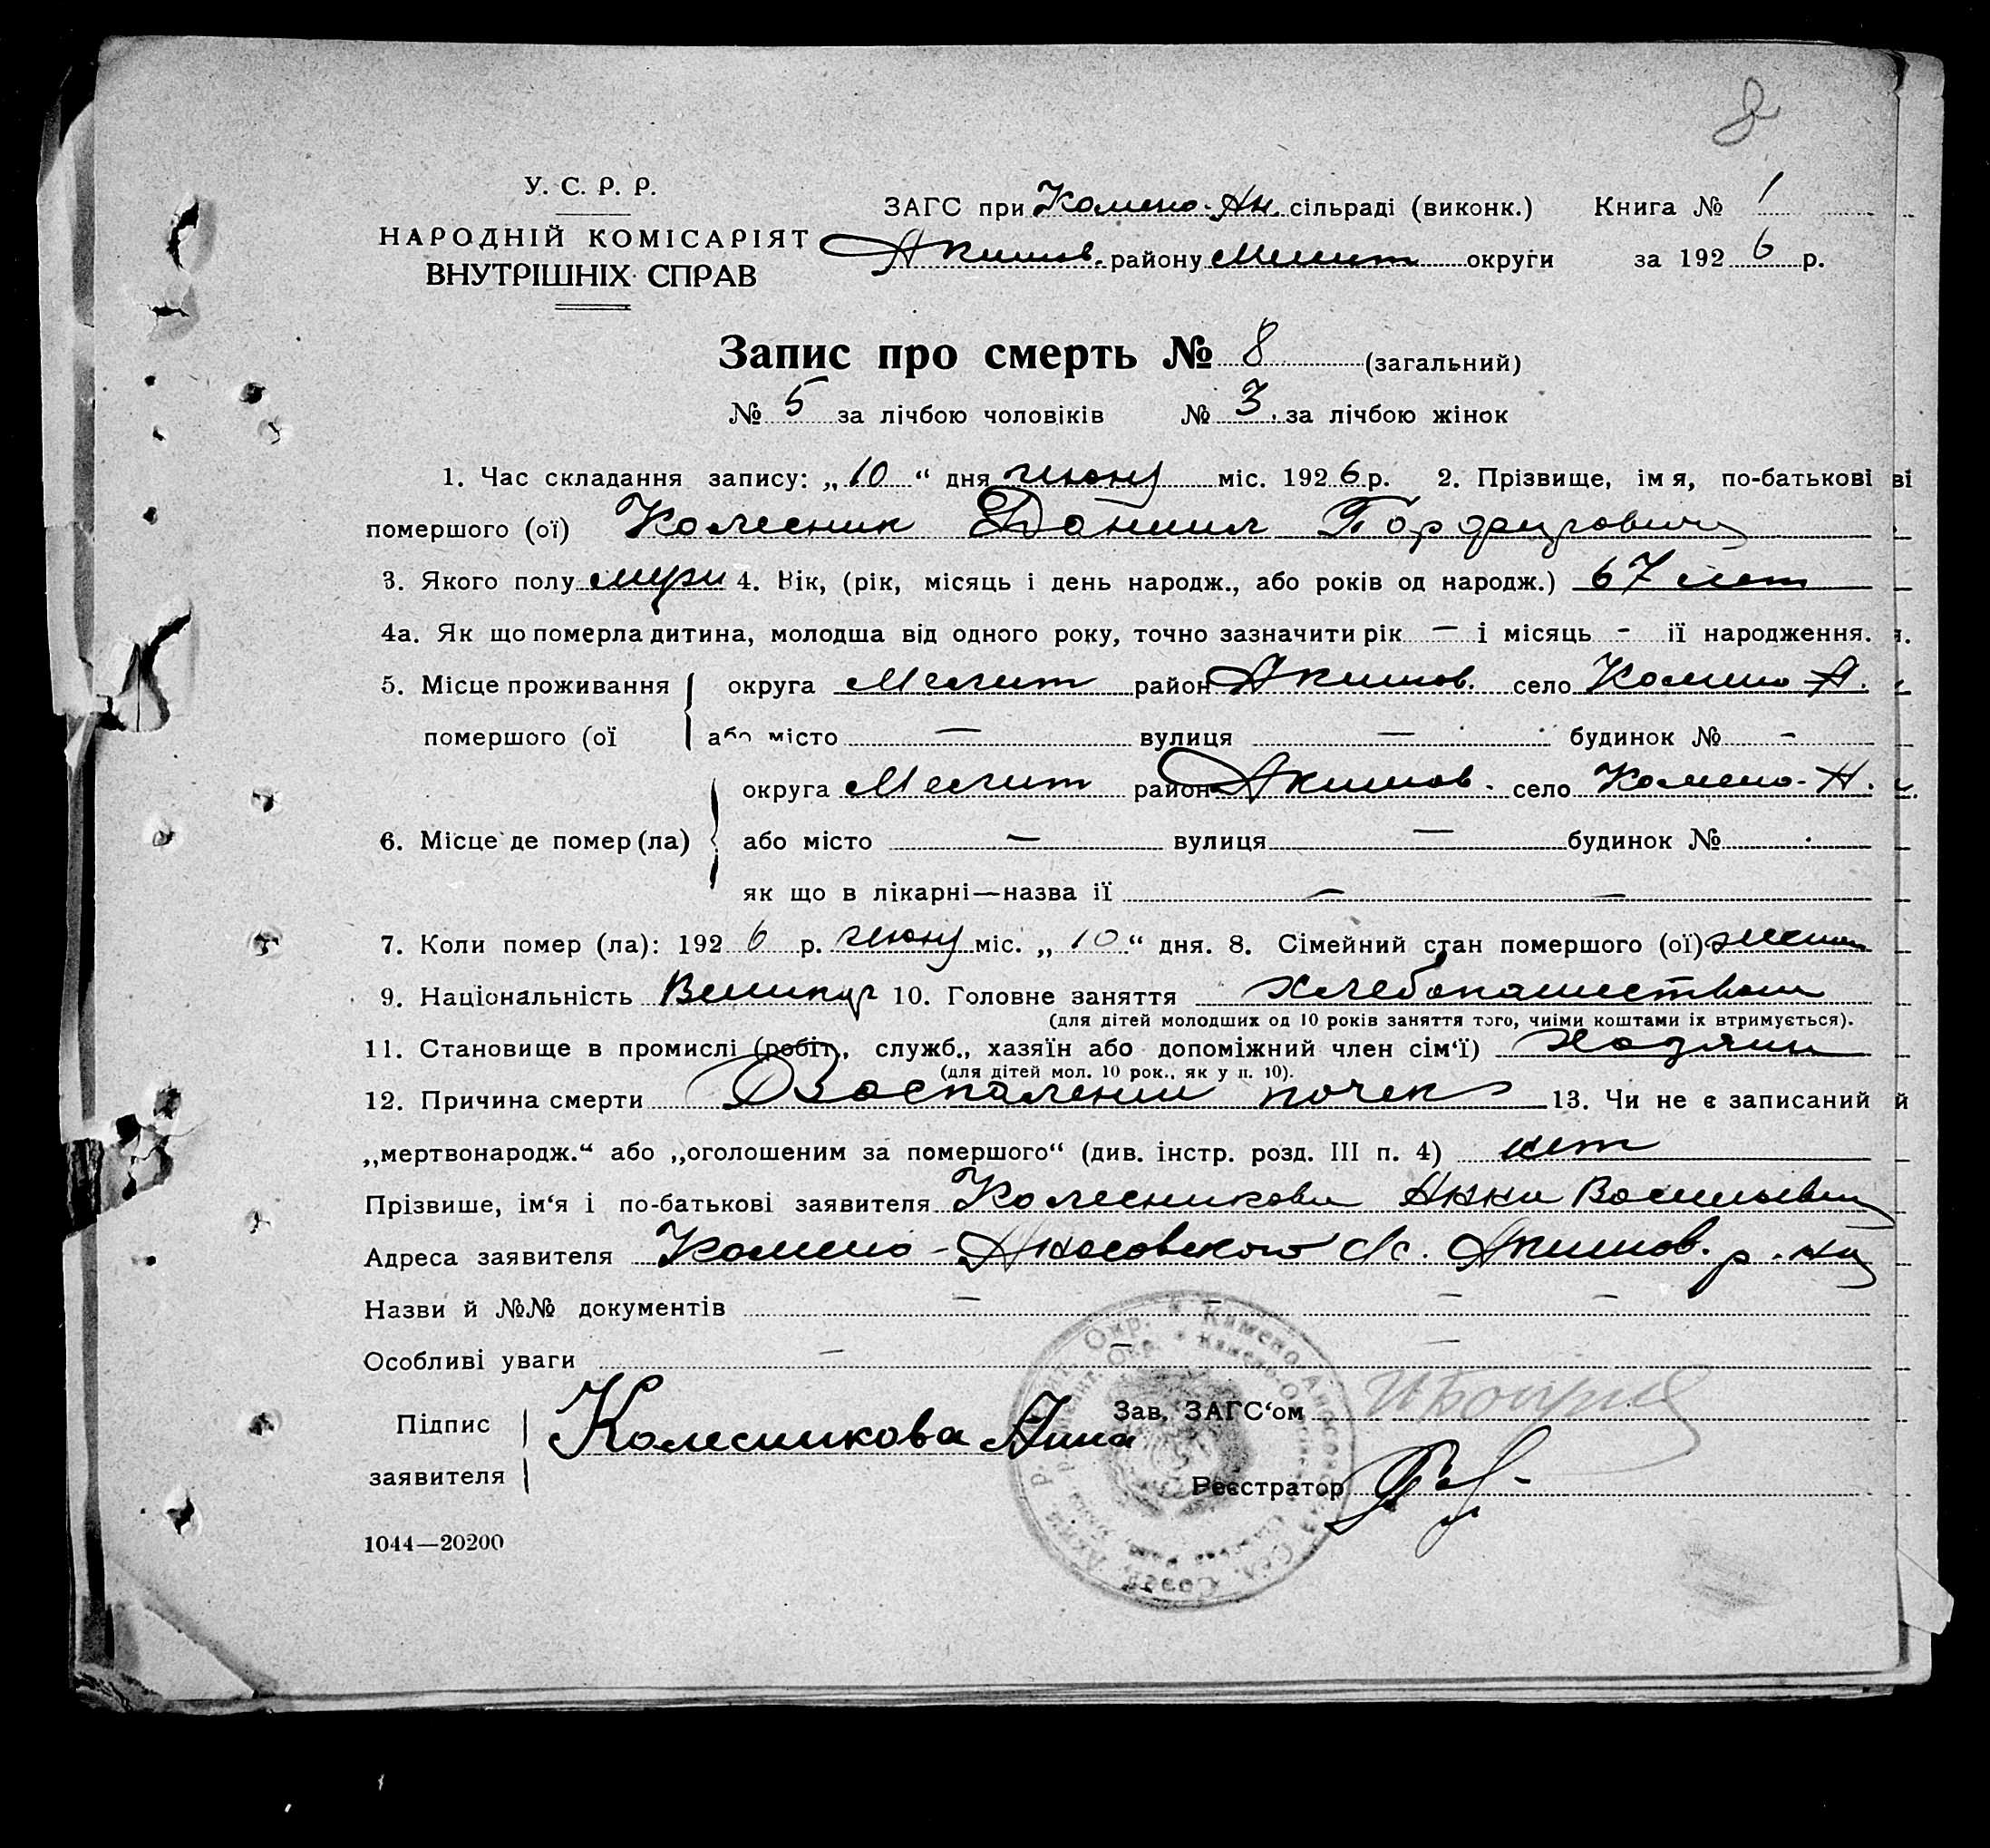 8
У. С. Р. Р.
НАРОДНІЙ КОМІСАРІЯТ
ВНУТРІШНІХ СПРАВ
ЗАГС при Камено-Ан. сільраді (виконк.) Книга № 1
Акимов. району Мелит округи за 1926 р.
Запис про смерть № 8 (загальний)
№ 5 за лічбою чоловіків № 3 за лічбою жінок
1. Час складання запису: „10“ дня июня міс. 1926 р. 2. Прізвище, імя, по-батькові
помершого (ої) Колесник Даниил
3. Якого полу муж 4. Вік, (рік, місяць і день народж., або років од народж.) 67 лет
4а. Як що померла дитина, молодша від одного року, точно зазначити рік — і місяць - її народження.
5. Місце проживання округа Мелит район Акимов. село Камено А.
помершого (ої або місто — вулиця — будинок № -
округа Мелит район Акимов. село Камено-А.
6. Місце де помер (ла) або місто — вулиця — будинок №
як що в лікарні—назва її — —
7. Коли помер (ла): 1926 р. июня міс. „10“ дня. 8. Сімейний стан помершого (ої) женат
9. Національність 10. Головне заняття хлебопашеством
(для дітей молодших од 10 років заняття того, чиїми коштами їх втримується).
11. Становище в промислі (робіт., служб., хазяїн або допоміжний член сім'ї) хазяин
(для дітей мол. 10 рок., як у п. 10).
12. Причина смерти Воспаление почек 13. Чи не є записаний
„мертвонародж.“ або „оголошеним за помершого“ (див. інстр. розд. III п. 4) нет
Прізвише, ім'я і по-батькові заявителя Колесникова Анна Васильевна
Адреса заявителя Камено-Аносовского с/с. Акимов. р-на
Назви й №№ документів — — — —
Особливі уваги — — —
Підпис заявителя Колесникова Анна
Зав. ЗАГС'ом
Реєстратор
1044—20200